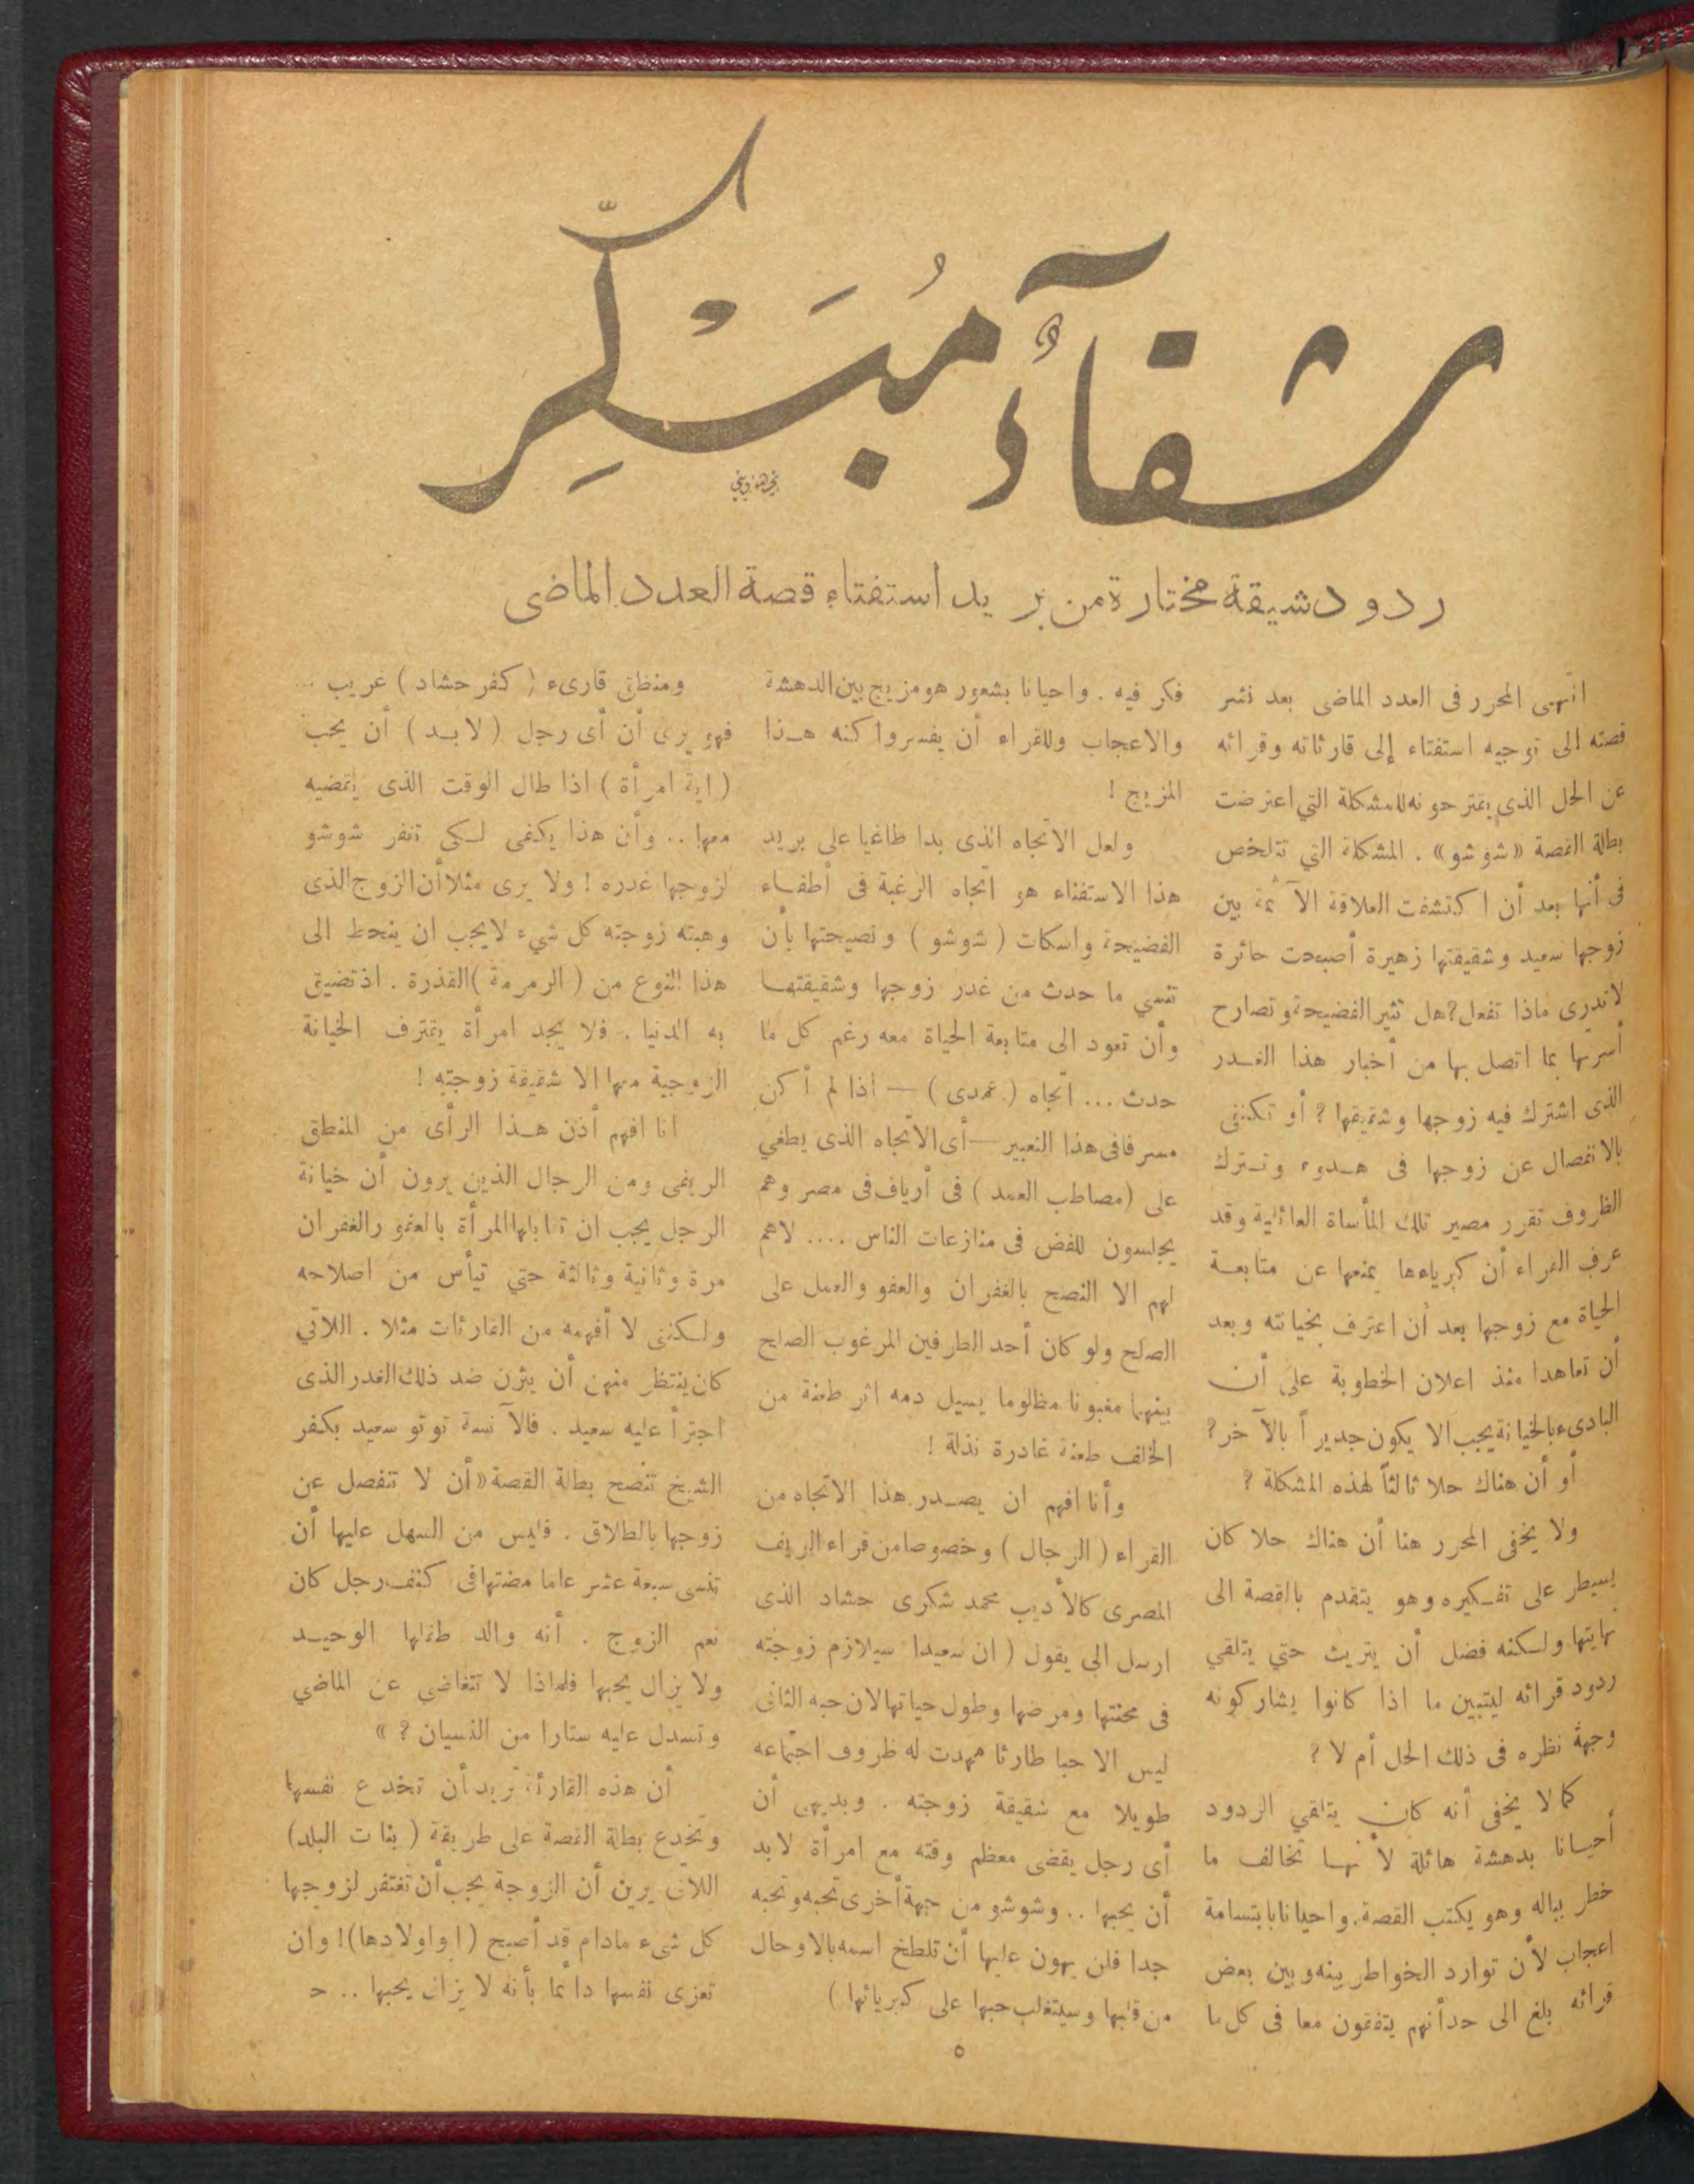 شقآءٌ مُبَكِّر
ردود شيقة مختارة من بريد استفتاء قصة العدد الماضى
انتهى المحرر فى العدد الماضى بعد نشر
قصته الى توجيه استفتاء إلى قارئاته وقرائه
عن الحل الذى يقترحونه للمشكلة التي اعترضت
بطلة القصة «شوشو» . المشكلة التي تتلخص
فى أنها بعد أن اكتشفت العلاقة الآثمة بين
زوجها سعيد وشقيقتها زهيرة أصبحت حائرة
لاتدرى ماذا تفعل؟ هل تثير الفضيحة وتصارح
أسرتها بما اتصل بها من أخبار هذا الغدر
الذى اشترك فيه زوجها وشقيقتها ؟ أو تكتفى
بالانفصال عن زوجها فى هدوء وتترك
الظروف تقرر مصير تلك المأساة العائلية وقد
عرف القراء أن كبرياءها يمنعها عن متابعة
الحياة مع زوجها بعد أن اعترف بخيانته وبعد
أن تعاهدا منذ اعلان الخطوبة على أن
البادىء بالخيانة يجب الا يكون جديراً بالآخر؟
أو أن هناك حلا ثالثاً لهذه المشكلة ؟
ولا يخفى المحرر هنا أن هناك حلا كان
يسيطر على تفكيره وهو يتقدم بالقصة الى
نهايتها ولكنه فضل أن يتريث حتي يتلقي
ردود قرائه ليتبين ما اذا كانوا يشاركونه
وجهة نظره فى ذلك الحل أم لا ؟
كما لا يخفى أنه كان يتلقي الردود
أحيانا بدهشة هائلة لأنها تخالف ما
خطر بباله وهو يكتب القصة. واحيانا بابتسامة
اعجاب لأن توارد الخواطر بينه وبين بعض
قرائه بلغ الى حد أنهم يتفقون معا فى كل ما
فكر فيه . واحيانا بشعور هو مزيج بين الدهشة
والاعجاب وللقراء أن يفسروا كنه هذا
المزيج !
ولعل الاتجاه الذى بدا طاغيا على بريد
هذا الاستفتاء هو اتجاه الرغبة فى أطفاء
الفضيحة واسكات ( شوشو ) ونصيحتها بأن
تنسي ما حدث من غدر زوجها وشقيقتها
وأن تعود الى متابعة الحياة معه رغم كل ما
حدث ... اتجاه ( عمدى ) — اذا لم أكن
مسرفا فى هذا التعبير — أى الاتجاه الذى يطغي
على (مصاطب العمد ) فى أرياف فى مصر وهم
يجلسون للفض فى منازعات الناس .... لاهم
لهم الا النصح بالغفران والعفو والعمل على
الصلح ولو كان أحد الطرفين المرغوب الصلح
بينهما مغبونا مظلوما يسيل دمه اثر طعنة من
الخلف طعنة غادرة نذلة !
وأنا افهم ان يصدر هذا الاتجاه من
القراء ( الرجال ) وخصوصا من قراء الريف
المصرى كالأديب محمد شكرى حشاد الذى
ارسل الى يقول ( ان سعيدا سيلازم زوجته
فى محنتها ومرضها وطول حياتها لان حبه الثانى
ليس الا حبا طارئا مهدت له ظروف اجتماعه
طويلا مع شقيقة زوجته . وبديهى أن
أى رجل يقضى معظم وقته مع امرأة لابد
أن يحبها .. وشوشو من جهة أخرى تحبه وتحبه
جدا فلن يهون عليها أن تلطخ اسمه بالاوحال
من قلبها وسيتغلب حبها على كبريائها )
ومنطق قارىء ( كفر حشاد ) غريب ...
فهو يرى أن أى رجل ( لابد ) أن يحب
( اية امرأة ) اذا طال الوقت الذى يقضيه
معها .. وأن هذا يكفى لكى تغفر شوشو
لزوجها غدره ! ولا يرى مثلا أن الزوج الذى
وهبته زوجته كل شيء لايجب ان ينحط الى
هذا النوع من ( الرمرمة ) القذرة . اذ تضيق
به الدنيا . فلا يجد امرأة يقترف الخيانة
الزوجية معها الا شقيقة زوجته !
انا افهم أذن هذا الرأى من المنطق
الريفى ومن الرجال الذين يرون أن خيانة
الرجل يجب ان تقابلها المرأة بالعفو والغفران
مرة وثانية وثالثة حتي تيأس من اصلاحه
ولكننى لا أفهمه من القارئات مثلا . اللاتي
كان ينتظر منهن أن يثرن ضد ذلك الغدر الذى
اجترأ عليه سعيد . فالآنسة توتو سعيد بكفر
الشيخ تنصح بطلة القصة «أن لا تنفصل عن
زوجها بالطلاق . فليس من السهل عليها أن
تنسى سبعة عشر عاما مضتها فى كنف رجل كان
نعم الزوج . أنه والد طفلها الوحيد
ولا يزال يحبها فلماذا لا تتغاضي عن الماضي
وتسدل عليه ستارا من النسيان ؟ »
أن هذه القارئة تريد أن تخدع نفسها
وتخدع بطلة القصة على طريقة ( بنات البلد)
اللاتى يرين أن الزوجة يجب أن تغتفر لزوجها
كل شىء مادام قد أصبح (ابو اولادها)! وان
تعزى نفسها دائما بأنه لا يزال يحبها ..
٥